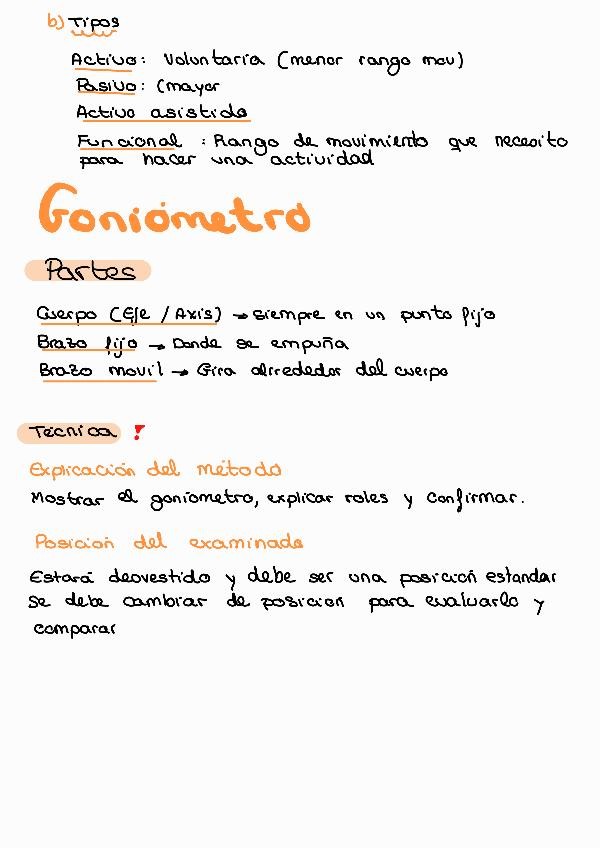 b) Tipos
Activo: Voluntaria (menor rango mov)
Pasivo: (mayor
Activo asistido
Funcional : Rango de movimiento que necesito
para hacer una actividad
Goniómetro
Partes
Cuerpo (Eje / Axis) → siempre en un punto fijo
Brazo fijo → Donde se empuña
Brazo movil → Gira alrrededor del cuerpo
Técnica !
Explicación del método
Mostrar el goniometro, explicar roles y confirmar.
Posición del examinado
Estará desvestido y debe ser una posición estandar
Se debe cambiar de posición para evaluarlo y
comparar